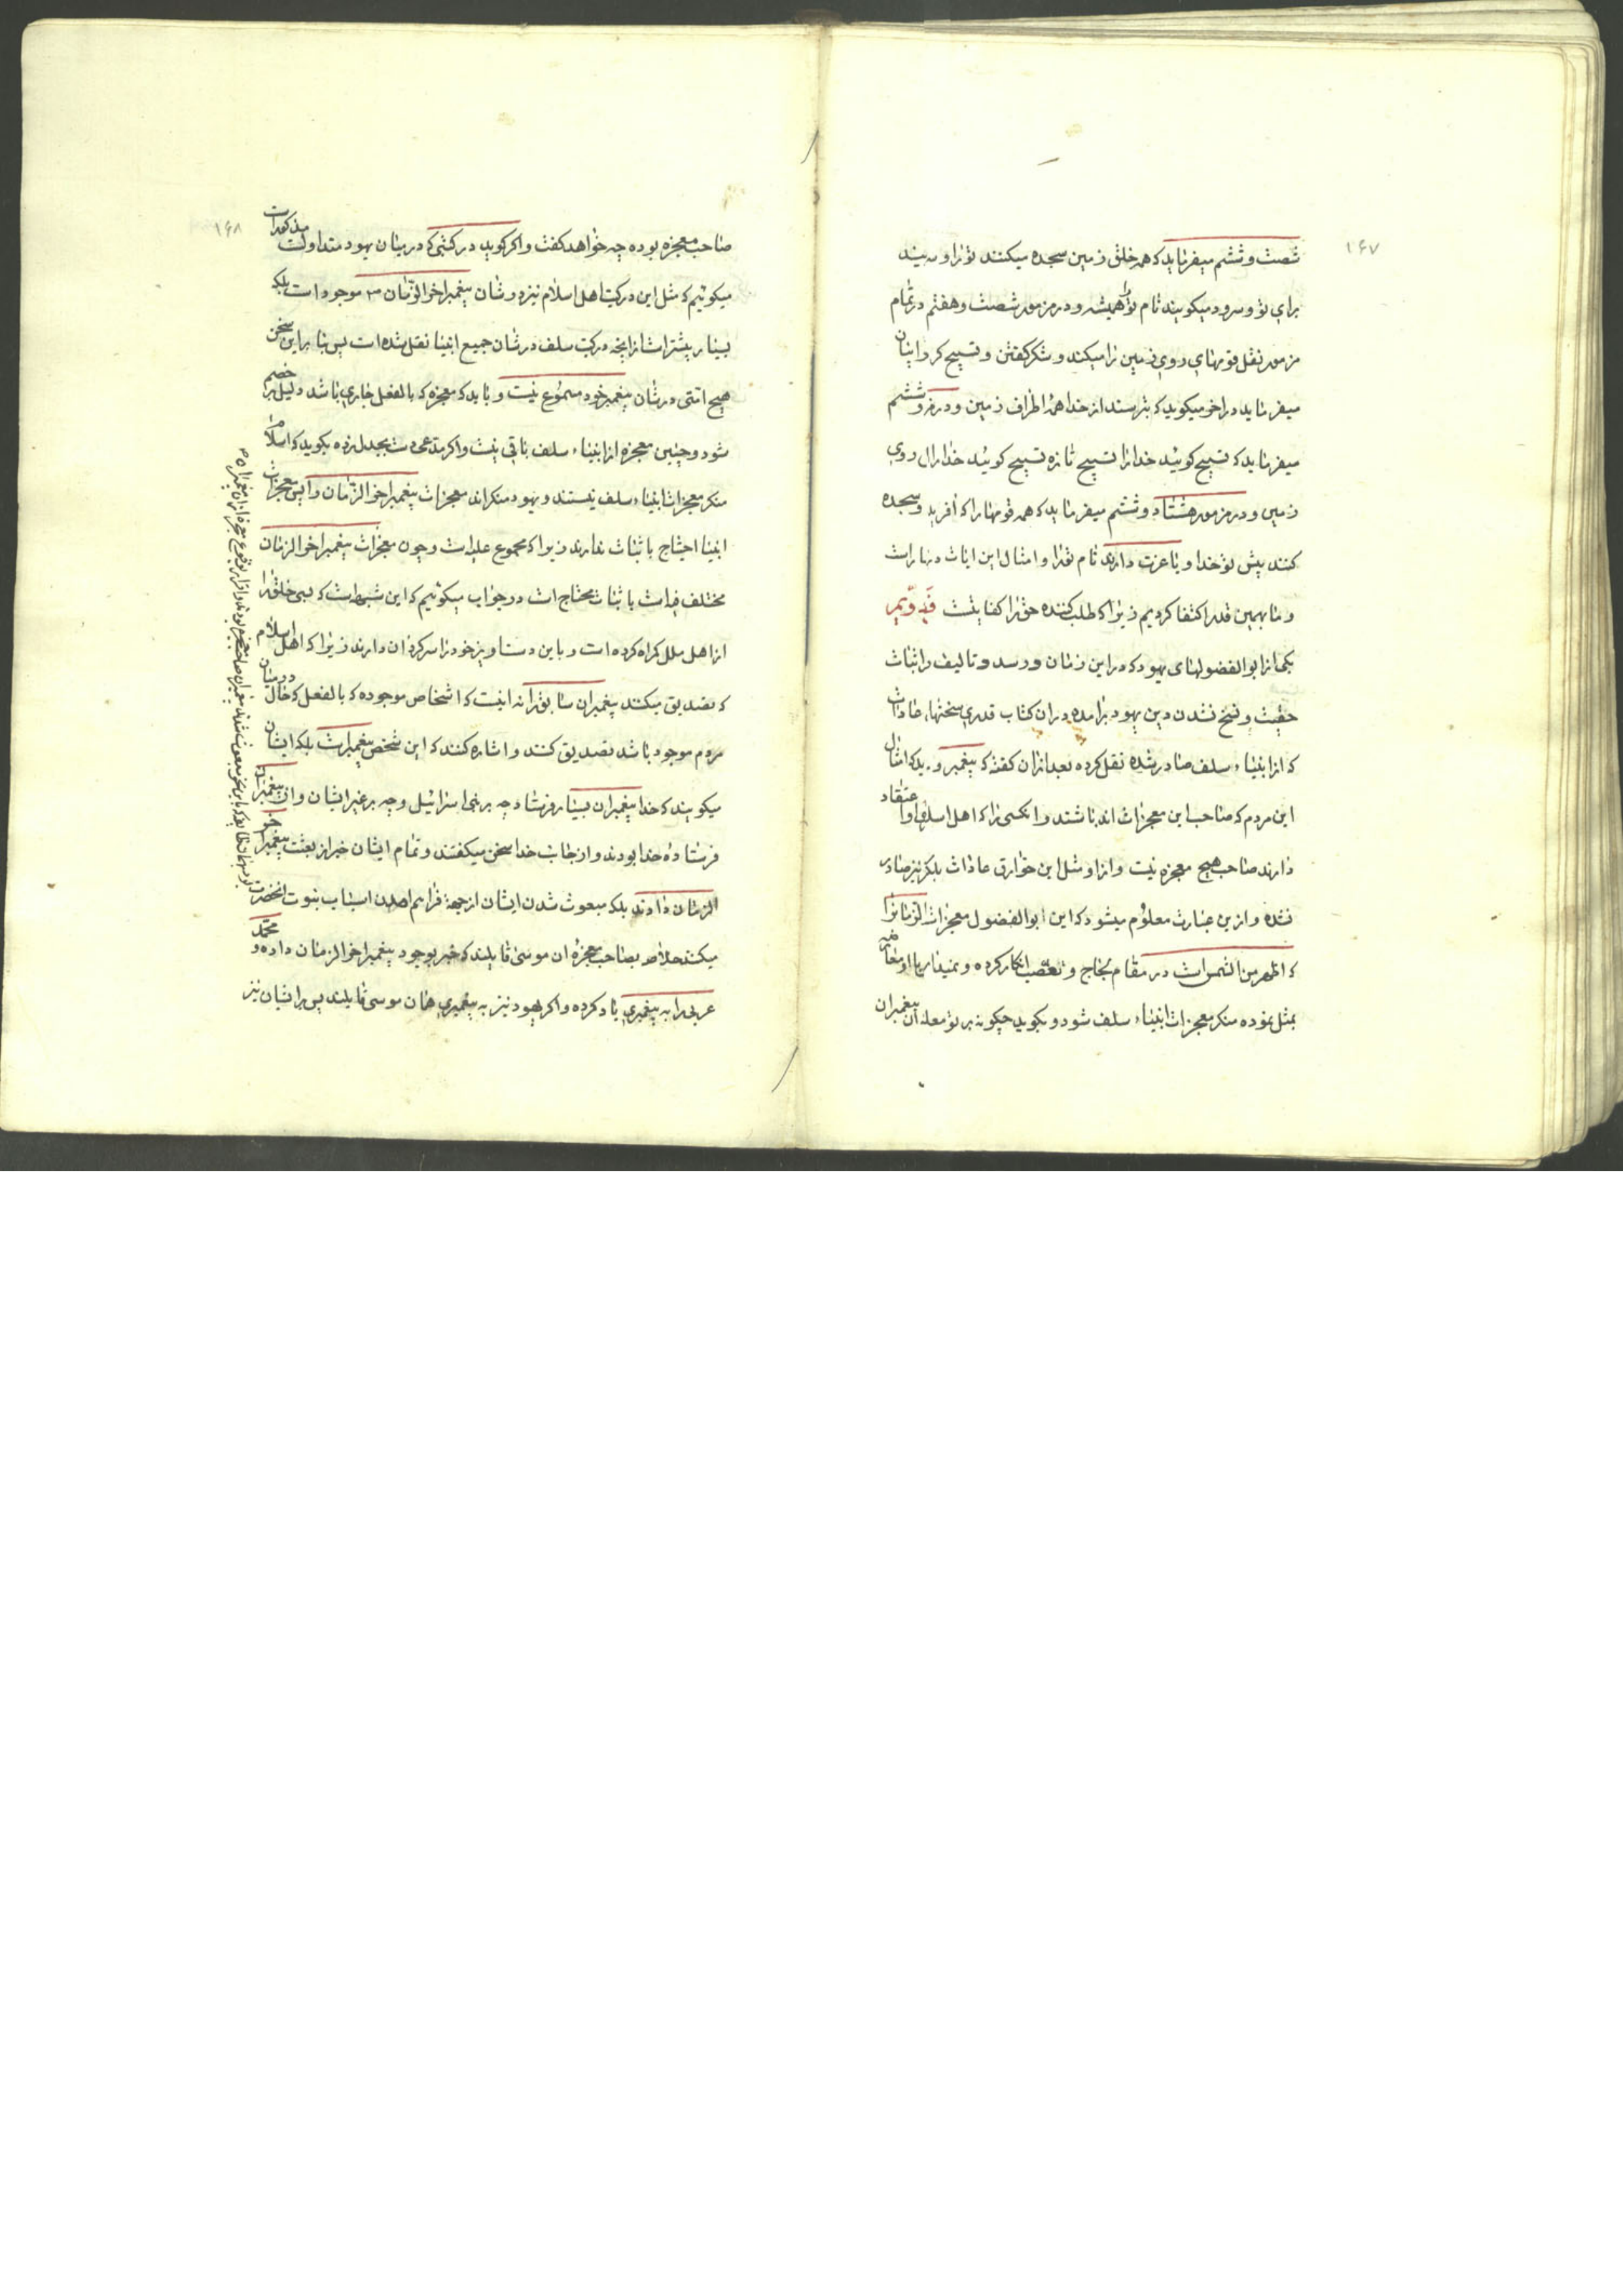 ۱۶۷
شصت و ششم میفرماید که همه خلق زمین سجده میکنند تو را و
برای تو و سرود میکویند نام تو همیشه و در مزمور شصت و هفتم در تمام
مزمور نقل قومهای روی زمین را میکند و شکر کفتن و تسبیح کرد ایشان
میفرماید در اخر میکوید که بترسند از خدا همه اطراف زمین و در
میفرماید که تسبیح کوئید خدا را تسبیح تازه تسبیح کوئید خدا را ال روی
زمین و در مزمور هشتاد و ششم میفرماید که همه قومها را که آفرید و سجده
کنند پیش تو خدا و با عزت دارند نام تو را و امثال این ایات
و ما بهمین قدر اکتفا کردیم زیرا که طلب کننده حق را کفایتست
یکی از ابو الفضولهای یهود که در این زمان و تالیف در اثبات
حقیت و نسخ نشدن دین یهود برامده در ان کتاب قدری سخنها، عادات
که از انبیاء سلف صادر شده نقل کرده بعد از ان کفته که پیغمبر امثال
این مردم که صاحب این معجزات اند باشند و انکسی را که اهل اسلام اعتقاد
دارند صاحب هیچ معجزه نیست و از او مثل این خوارق عادات بلکه نیز صادر
نشده و ازین عبارت معلوم میشود که این ابو الفضول معجزات
که اظهر من الشمس است در مقام لجاج و تعصب انکار کرده و نمیداند
بمثل نموده منکر معجزات انبیاء سلف شود و بکوید چکونه بر تو معلوم پیغمبران
۱۶۸
صاحب معجزه بوده چه خواهد کفت و اکر کوید در کتبی که در میان یهود متداولست مذکورات
میکوئیم که مثل این در کتب اهل اسلام نیز در شان پیغمبر اخر الزمان موجود است بلکه
بسیار بیشتر است از انچه در کتب سلف در شان جمیع انبیا نقل شده است پس بنا بر این سخن
هیچ امتی در شان پیغمبر خود مسموع نیست و باید که معجزه که بالفعل جاری باشد دلیل بر خصم
شود و چنین معجزه از انبیاء سلف باقی نیست و اکر مدعی دست بجدل زده بکوید که اسلام
منکر معجزات انبیاء سلف نیستند و یهود منکر اند معجزات پیغمبر اخر الزمان را پس معجزات
انبیا احتیاج باثبات ندارند زیرا که مجموع علیه است و چون معجزات پیغمبر اخر الزمان
مختلف فیه است باثبات محتاج است در جواب میکوئیم که این شبهه است که بسی خلق را
از اهل ملل کمراه کرده است و باین دستاویز خود را سرکردان دارند زیرا که اهل اسلام
که تصدیق میکنند پیغمبران سابق را نه اینست که اشخاص موجوده که بالفعل که حال در میان
مردم موجود باشد تصدیق کنند و اشاره کنند که این شخص پیغمبر است بلکه ایشان
میکویند که خدا پیغمبران بسیار فرستاد چه بر بنی اسرائیل و چه بر غیر ایشان و ان پیغمبران
فرستاده خدا بودند و از جانب خدا سخن میکفتند و تمام ایشان خبر از بعثت پیغمبر اخر
الزمان دادند بلکه مبعوث شدن ایشان از جهة فراهم امدن اسباب نبوت انحضرت
میکنند خلاصه بصاحب معجزه ان موسی قایلند که خبر بوجود پیغمبر اخر الزمان داده و محمد
عربی را به پیغمبری یاد کرده و اکر یهود نیز به پیغمبری همان موسی قایلند پس بر ایشان نیز